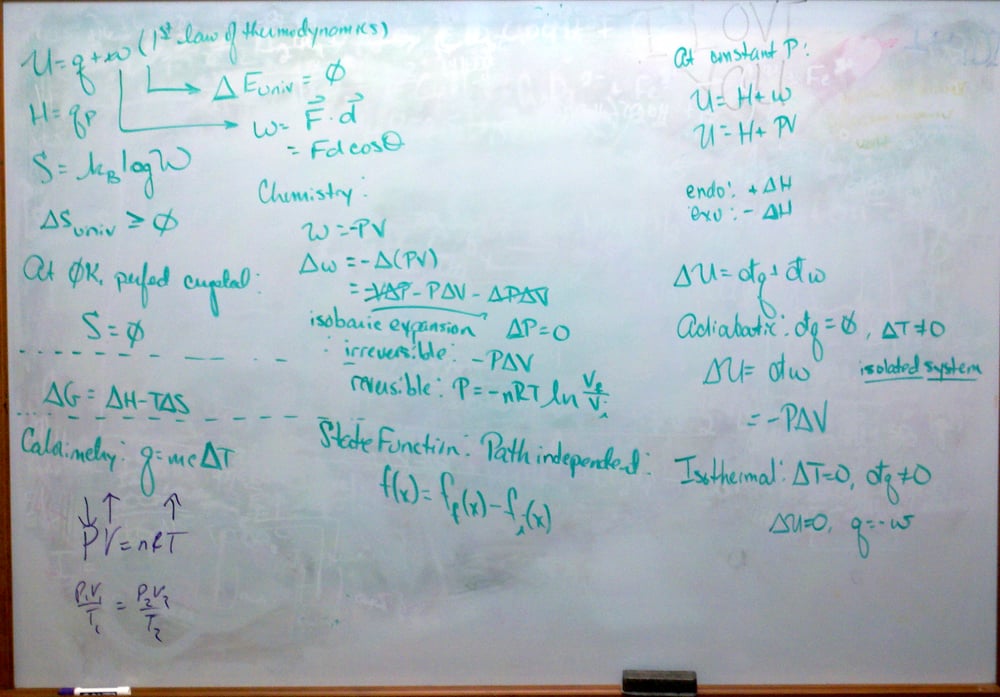 U = q + w (1st law of thermodynamics)
ΔE univ = ∅
H = qP
w = F⃗ · d⃗
= Fd cosθ
S = kB log W
ΔS univ ≥ ∅
At ∅K, perfect crystal:
S = ∅
ΔG = ΔH - TΔS
Calorimetry: q = mcΔT
↓ ↑ ↑
PV = nRT
P₁V₁/T₁ = P₂V₂/T₂
Chemistry:
w = -PV
Δw = -Δ(PV)
= -VΔP - PΔV - ΔPΔV
isobaric expansion ΔP = 0
irreversible: -PΔV
reversible: P = -nRT ln Vf/Vi
State Function: Path independent:
f(x) = ff(x) - fi(x)
At constant P:
U = H + w
U = H + PV
endo: + ΔH
exo: - ΔH
ΔU = đq + đw
Adiabatic: đq = ∅, ΔT ≠ 0
ΔU = đw isolated system
= -PΔV
Isothermal: ΔT = 0, đq ≠ 0
ΔU = 0, q = -w